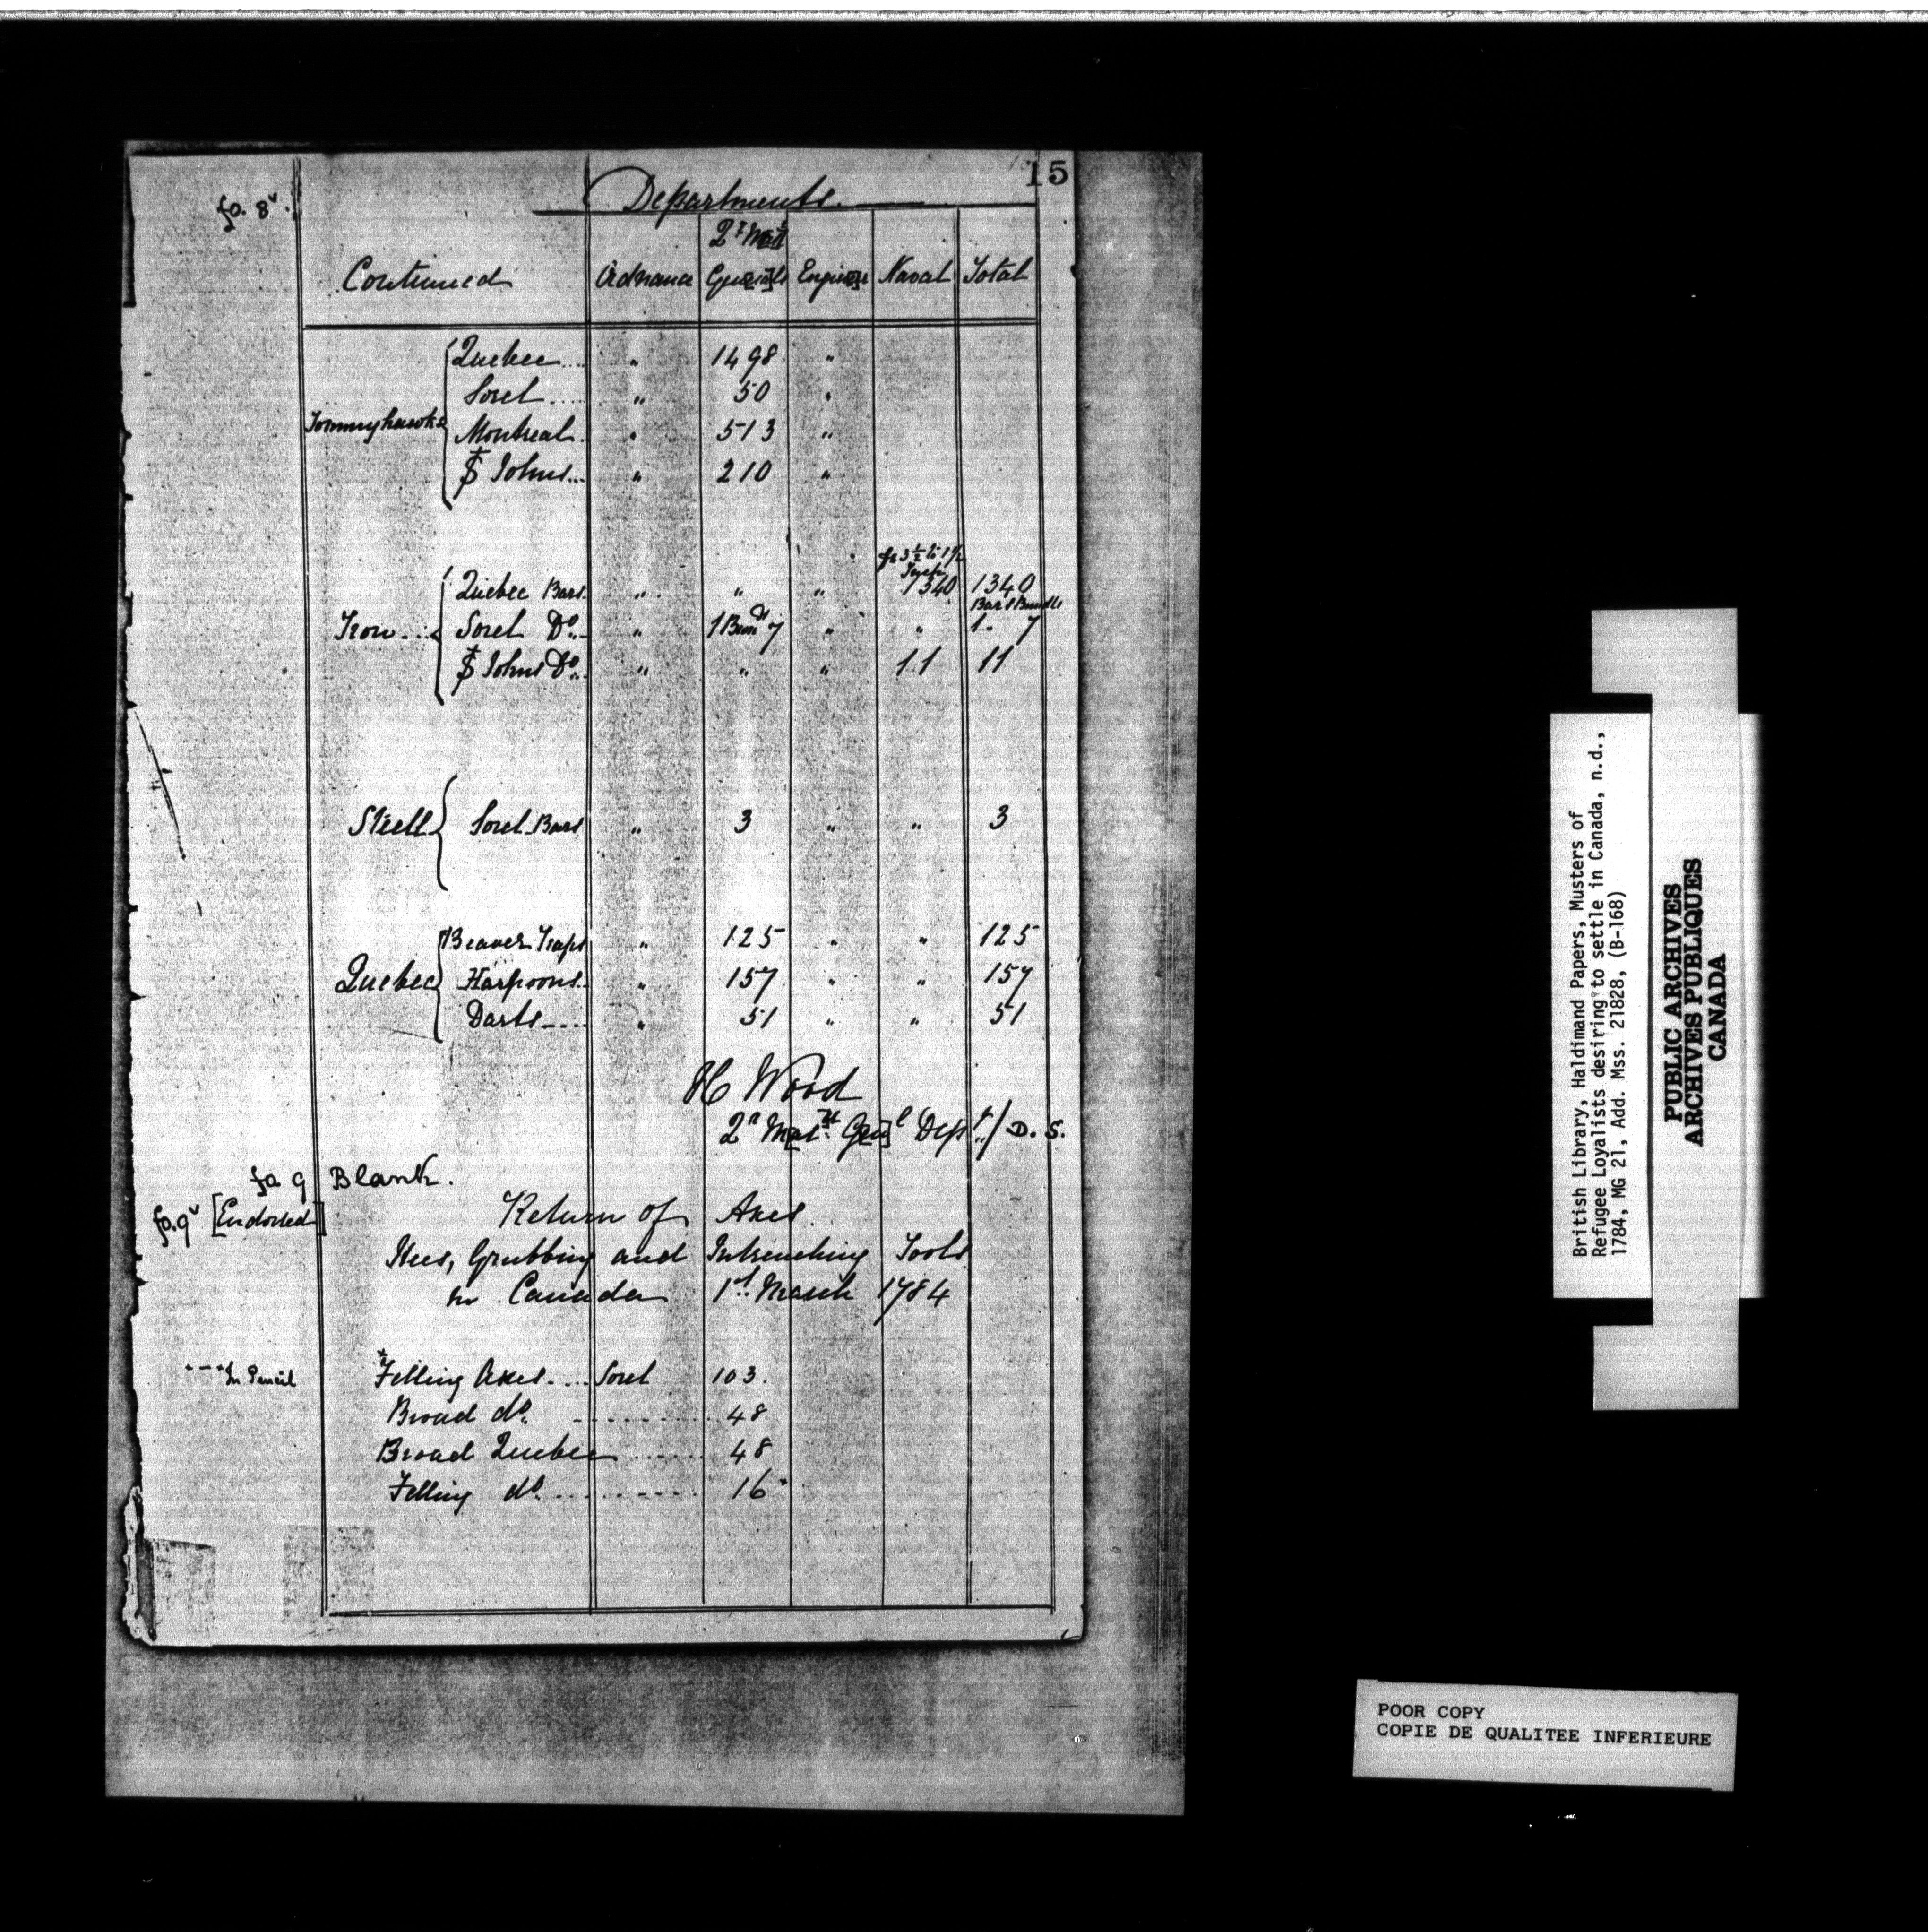 15
fo. 8v.
Departments.
Continued Ordnance Qr Mastr Generals Engineers Naval Total
Tommyhawks
Quebec.... " 1498 "
Sorel..... " 50 "
Montreal.. " 513 "
St Johns... " 210 "
Iron...
fr 3½ to 1½ Inch
Quebec Bars. " " " 1340 1340
Bars Bundls
Sorel Do.. " 1 Bundl 7 " " 1. 7
St Johns Do.. " " " 11 11
Steell Sorel Bars " 3 " " 3
Quebec
Beaver Traps " 125 " " 125
Harpoons.. " 157 " " 157
Darts..... " 51 " " 51
H Wood
Qr Mastr Gen]l Depr/ D. S.
fo 9 Blank.
fo. 9v [Endorsed]
Return of Axes
Hees, Grubbing and Intrenching Tools
in Canada 1st March 1784
---*In Pencil
*Felling Axes.... Sorel 103.
Broad do. ........... 48
Broad Quebec ....... 48
Felling do. .......... 16*
British Library, Haldimand Papers, Musters of
Refugee Loyalists desiring to settle in Canada, n.d.,
1784, MG 21, Add. Mss. 21828, (B-168)
PUBLIC ARCHIVES
ARCHIVES PUBLIQUES
CANADA
POOR COPY
COPIE DE QUALITEE INFERIEURE